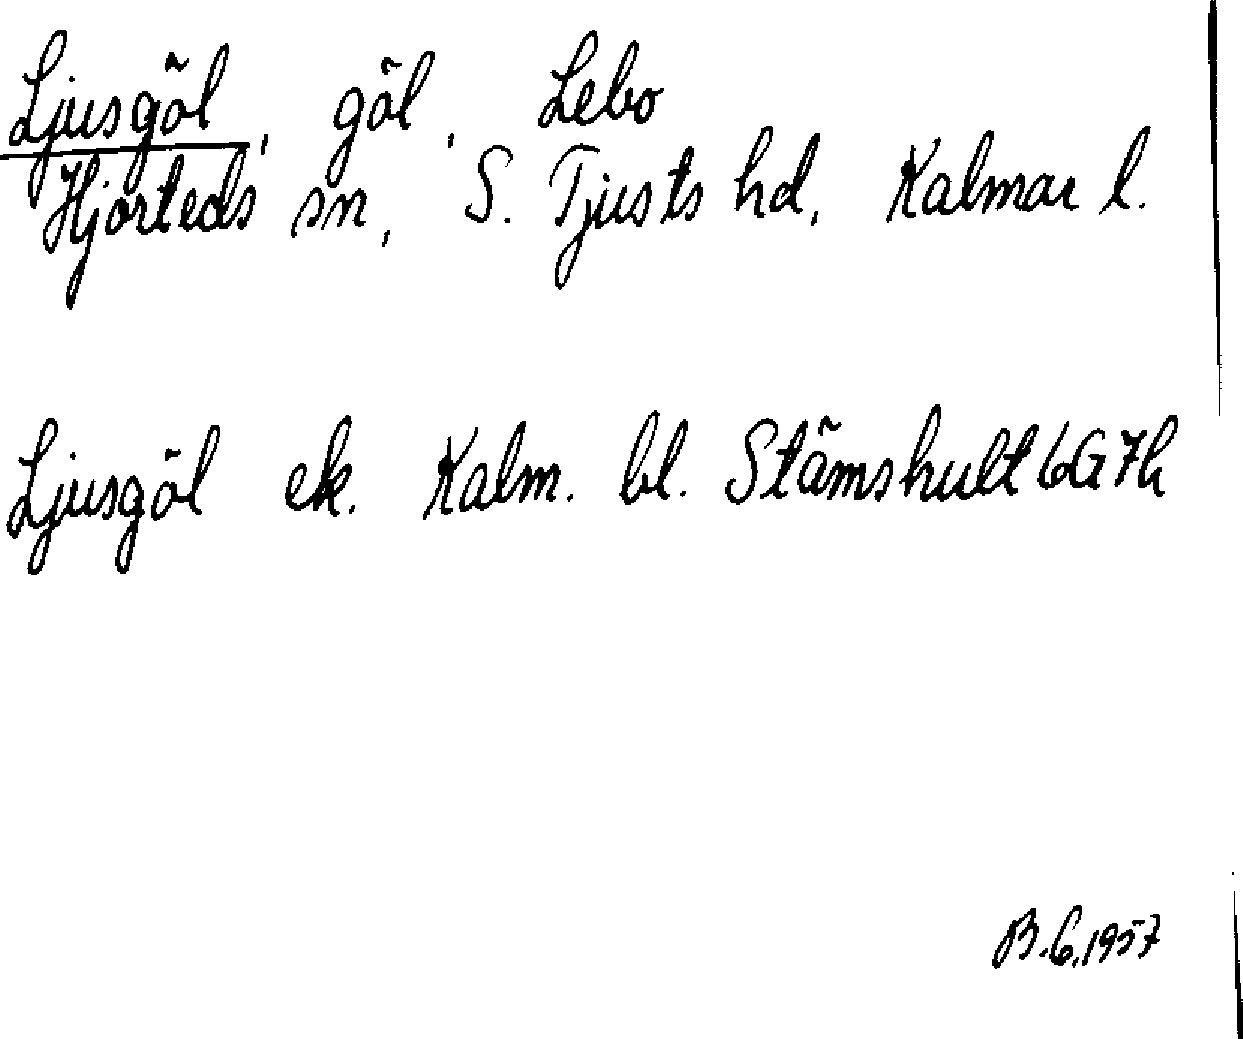 Ljusgöl, göl, Lebo
Hjorteds sn, S. Tjusts hd, Kalmar l.
Ljusgöl ek. Kalm. bl. Stämshult 6G7h
B.G. 1957